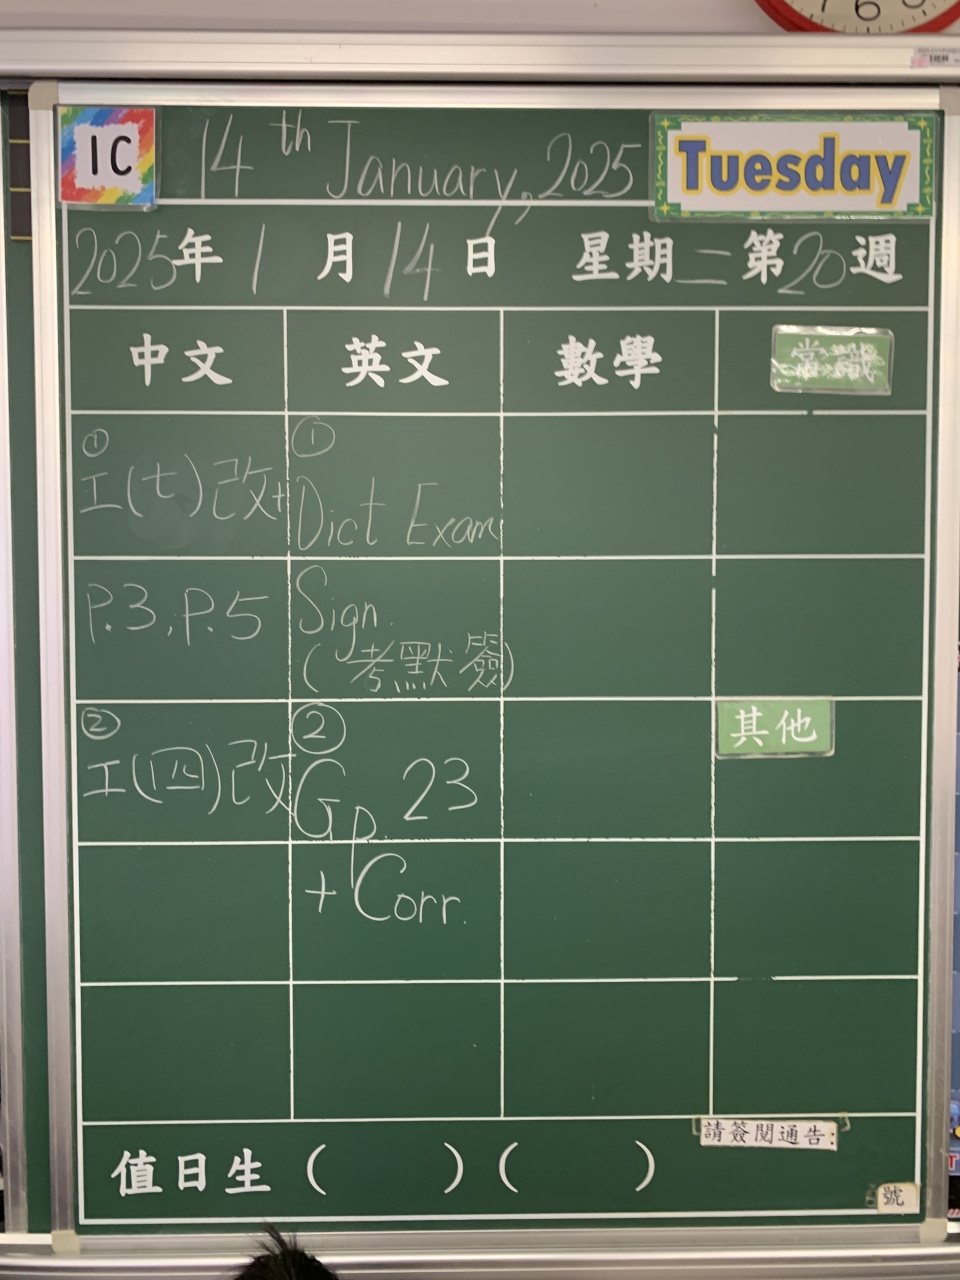 1C
14th January, 2025
Tuesday
2025年1月14日 星期二 第20週
中文
英文
數學
常識
①
工(七)改+
P.3, P.5
②
工(四)改
①
Dict Exam
Sign.
(考默簽)
②
Gp 23
+ Corr.
其他
請簽閱通告:
值日生 ( ) ( )
號